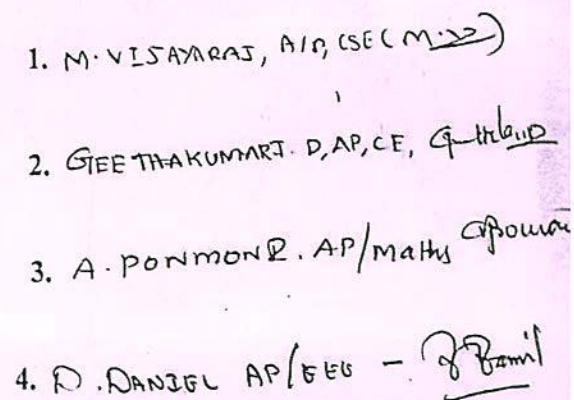 1. M. VIJAYARAJ, A/P, CSE (M.V)
2. GEETHAKUMARI. D, AP, CE,
3. A. PONMONI. AP/Maths
4. D. DANIEL AP/EEE -